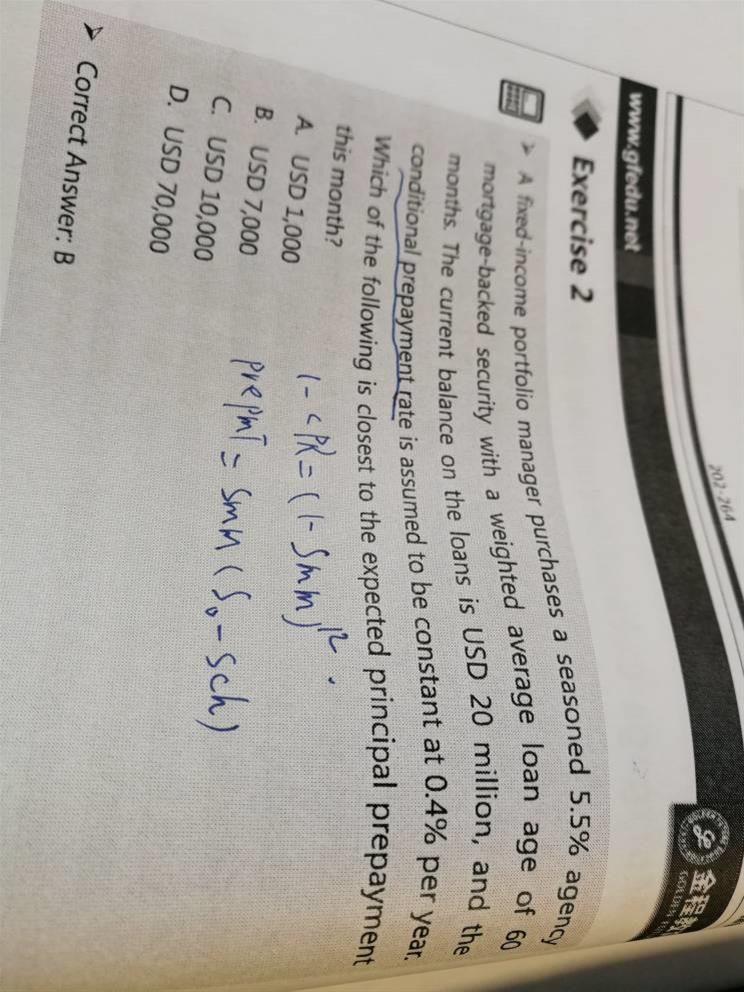 202-264
www.gfedu.net
金程教
GOLDEN
Exercise 2
➢ A fixed-income portfolio manager purchases a seasoned 5.5% agency
mortgage-backed security with a weighted average loan age of 60
months. The current balance on the loans is USD 20 million, and the
conditional prepayment rate is assumed to be constant at 0.4% per year.
Which of the following is closest to the expected principal prepayment
this month?
A. USD 1,000
B. USD 7,000
C. USD 10,000
D. USD 70,000
1-CPR=(1-Smm)¹².
prepmT = SmM (S₀-Sch)
➢ Correct Answer: B